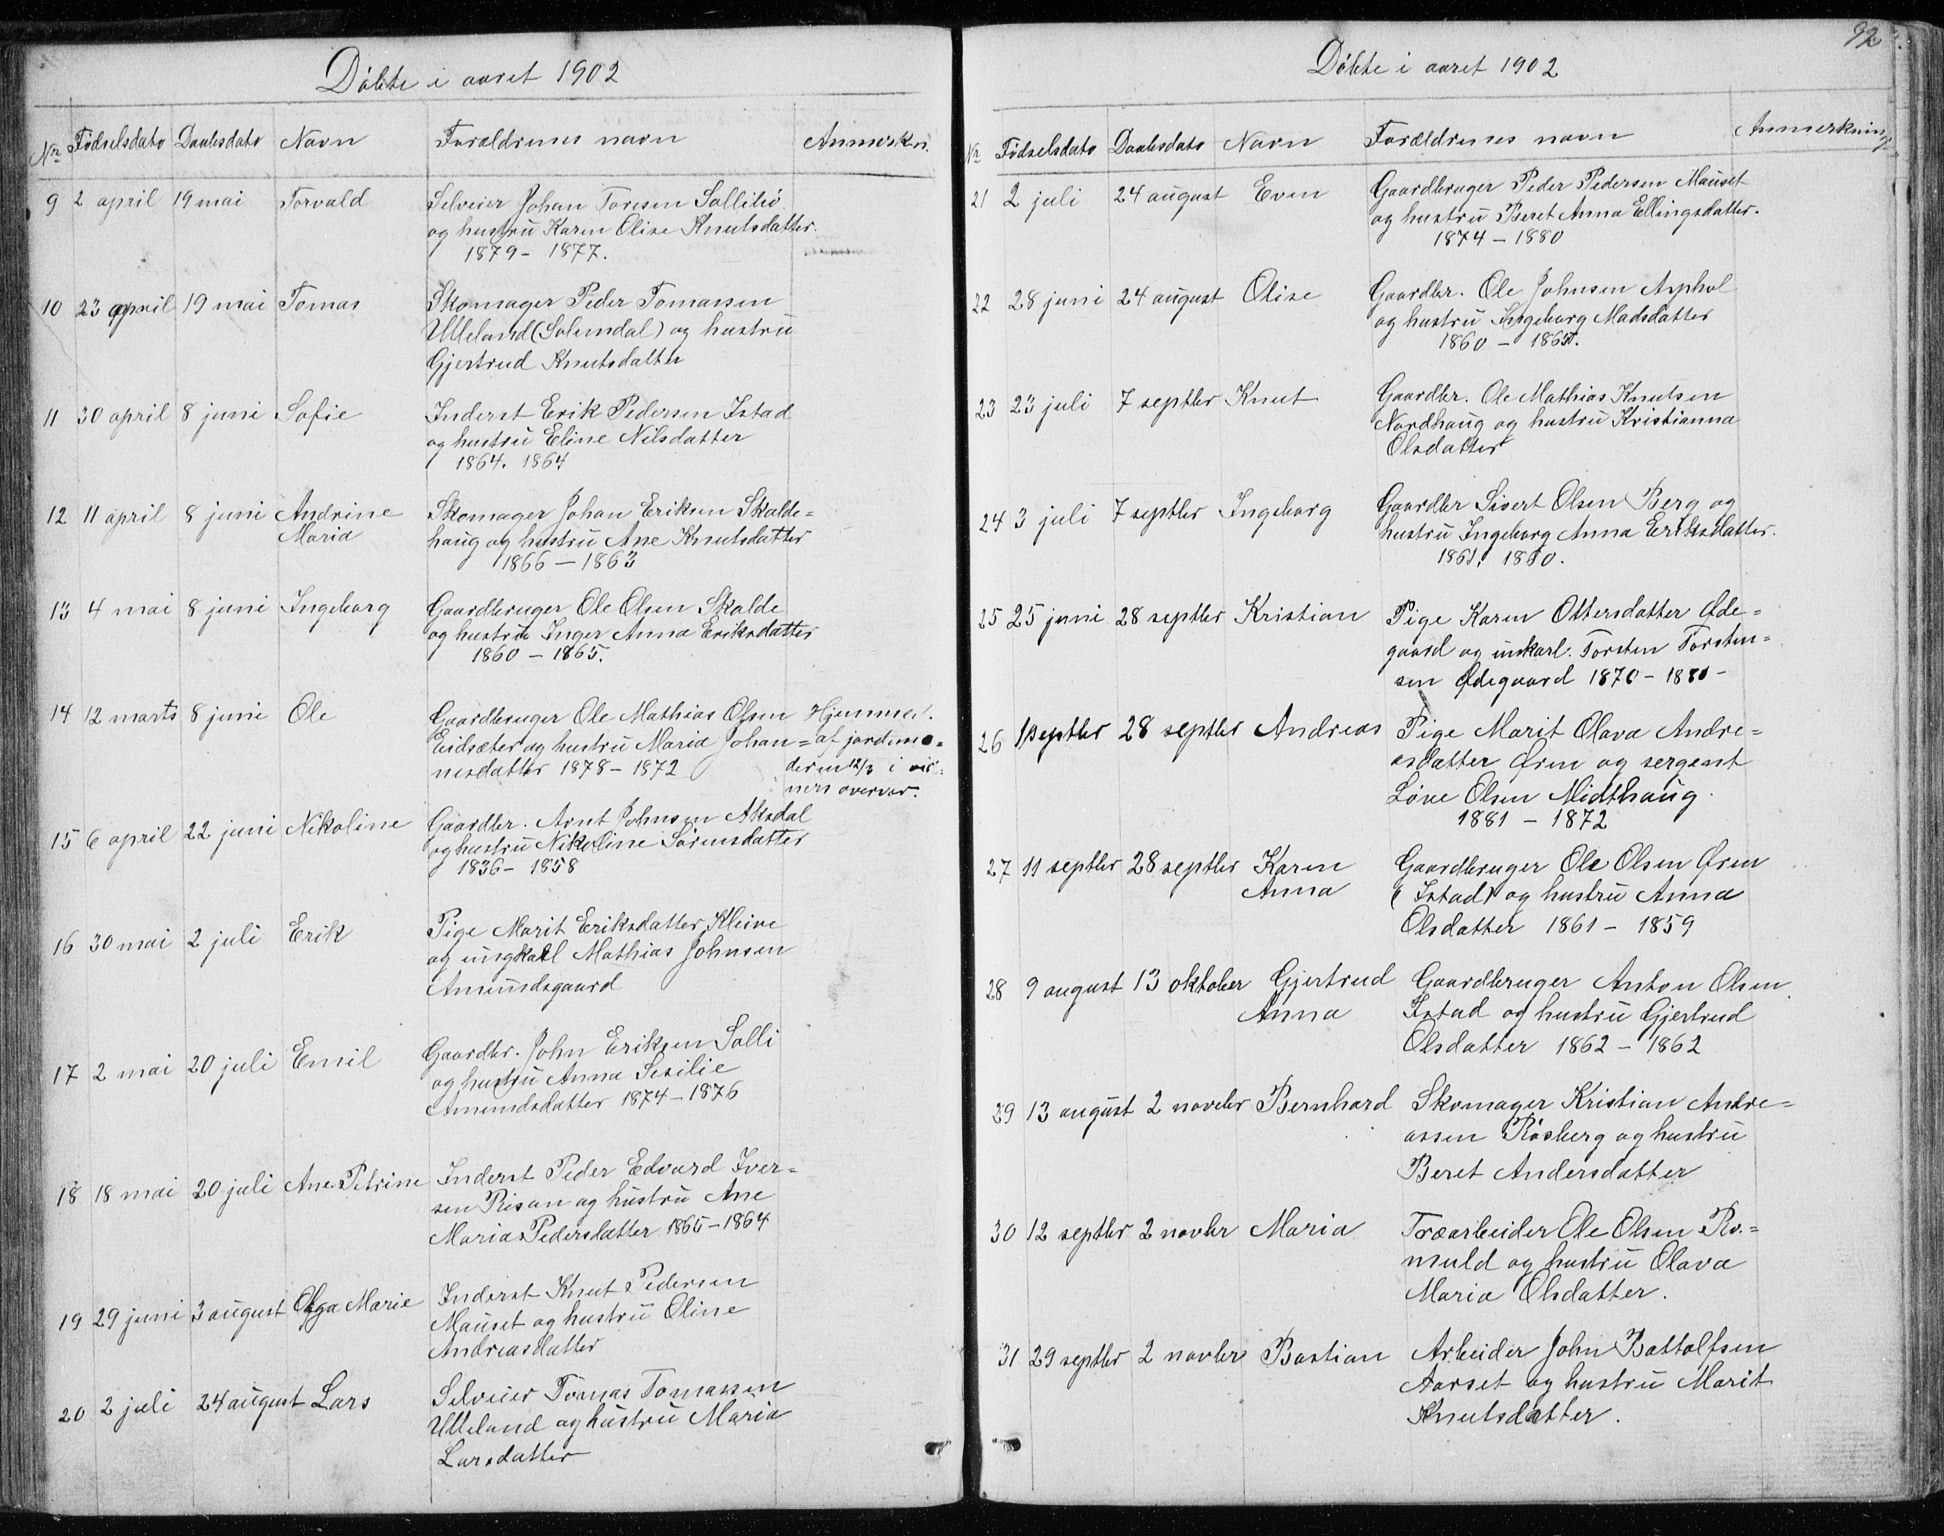 Döbte i aaret 1902
Nr. Fødselsdato Daabsdato Navn Forældrenes navn Anmerkn.
9 2 april 19 mai Torvald Selveier Johan Toresen Sollibö
og hustru Karen Olise Knutsdatter.
1879 - 1877.
10 23 april 19 mai Tomas Skomager Peder Tomassen
Ulleland (Solemdal) og hustru
Gjertrud Knutsdatter
11 30 april 8 juni Sofie Inderst Erik Pedersen Istad
og hustru Eline Nilsdatter
1864. 1864
12 11 april 8 juni Andrine Skomager Johan Eriksen Skalde=
Maria haug og hustru Ane Knutsdatter
1866 - 1863
13 4 mai 8 juni Ingeborg Gaardbruger Ole Olsen Skalde
og hustru Inger Anna Eriksdatter
1860 - 1865.
14 12 marts 8 juni Ole Gaardbruger Ole Mathias Olsen Hjemmed.
Eidsæter og hustru Maria Johan= af jordemo=
nesdatter 1878 - 1872 deren 12/3 i vid=
ners overvær.
15 6 april 22 juni Nikoline Gaardbr. Arnt Johnsen Aksdal
og hustru Nikoline Sörensdatter
1836 - 1858
16 30 mai 2 juli Erik Pige Marit Eriksdatter Kleive
og ungkarl Mathias Johnsen
Amundsgaard
17 2 mai 20 juli Emil Gaardbr. John Eriksen Solli
og hustru Anna Sesilie
Amundsdatter 1874 - 1876
18 18 mai 20 juli Ane Petrine Inderst Peder Edvard Iver=
sen Risan og hustru Ane
Maria Pedersdatter 1865 - 1864
19 29 juni 3 august Olga Marie Inderst Knut Pedersen
Mauset og hustru Oline
Andreasdatter
20 2 juli 24 august Lars Selveier Tomas Tomassen
Ulleland og hustru Maria
Larsdatter
92
Döbte i aaret 1902
Nr. Fødselsdato Daabsdato Navn Forældrenes navn Anmerkning
21 2 juli 24 august Even Gaardbruger Peder Pedersen Mauset
og hustru Beret Anna Ellingsdatter.
1874 - 1880
22 28 juni 24 august Olise Gaardbr. Ole Johnsen Asphol
og hustru Ingeborg Madsdatter
1860 - 1865.
23 23 juli 7 septbr Knut Gaardbr. Ole Mathias Knutsen
Nordhaug og hustru Kristianna
Olsdatter
24 3 juli 7 septbr Ingeborg Gaardbr Sivert Olsen Berg og
hustru Ingeborg Anna Eriksdatter.
1861. 1860.
25 25 juni 28 septbr Kristian Pige Karen Ottersdatter Øde=
gaard og unkarl. Torsten Torsten=
sen Ødegaard 1870 - 1880 -
26 1 septbr 28 septbr Andreas Pige Marit Olava Andre=
asdatter Ören og sergent
Löve Olsen Midthaug.
1881 - 1872
27 11 septbr 28 septbr Karen Gaardbruger Ole Olsen Ören
Anna (Istad) og hustru Anna
Olsdatter 1861 - 1859
28 9 august 13 oktober Gjertrud Gaardbruger Anton Olsen
Anna Istad og hustru Gjertrud
Olsdatter 1862 - 1862
29 13 august 2 novebr Bernhard Skomager Kristian Andre=
assen Rösberg og hustru
Beret Andersdatter
30 12 septbr 2 novbr Maria Træarbeider Ole Olsen Ro=
muld og hustru Olava
Maria Olsdatter.
31 29 septbr 2 novbr Bastian Arbeider John Bottolfsen
Aarset og hustru Marit
Knutsdatter.